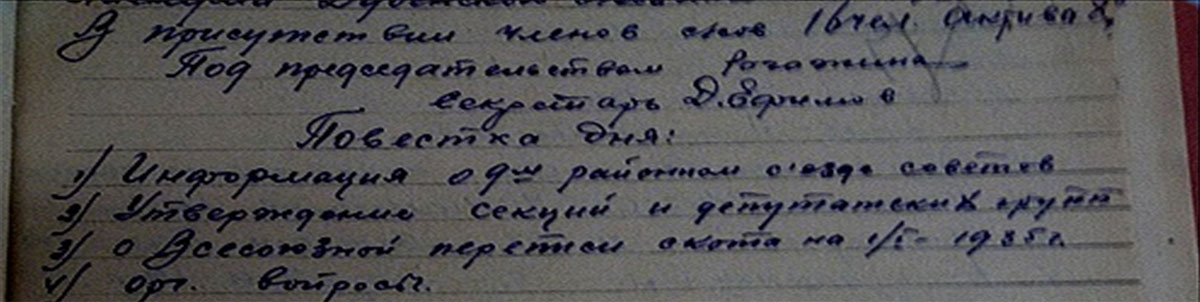 В присутствии членов с/сов 16 чел. актива
Под председательством Рогожина
Секретарь Д. Ефимов
Повестка дня:
1) Информация о 9ом районном с'езде советов
2) Утверждение секций и депутатских групп
3) о Всесоюзной переписи скота на 1/I- 1935 г.
4) орг. вопросы.